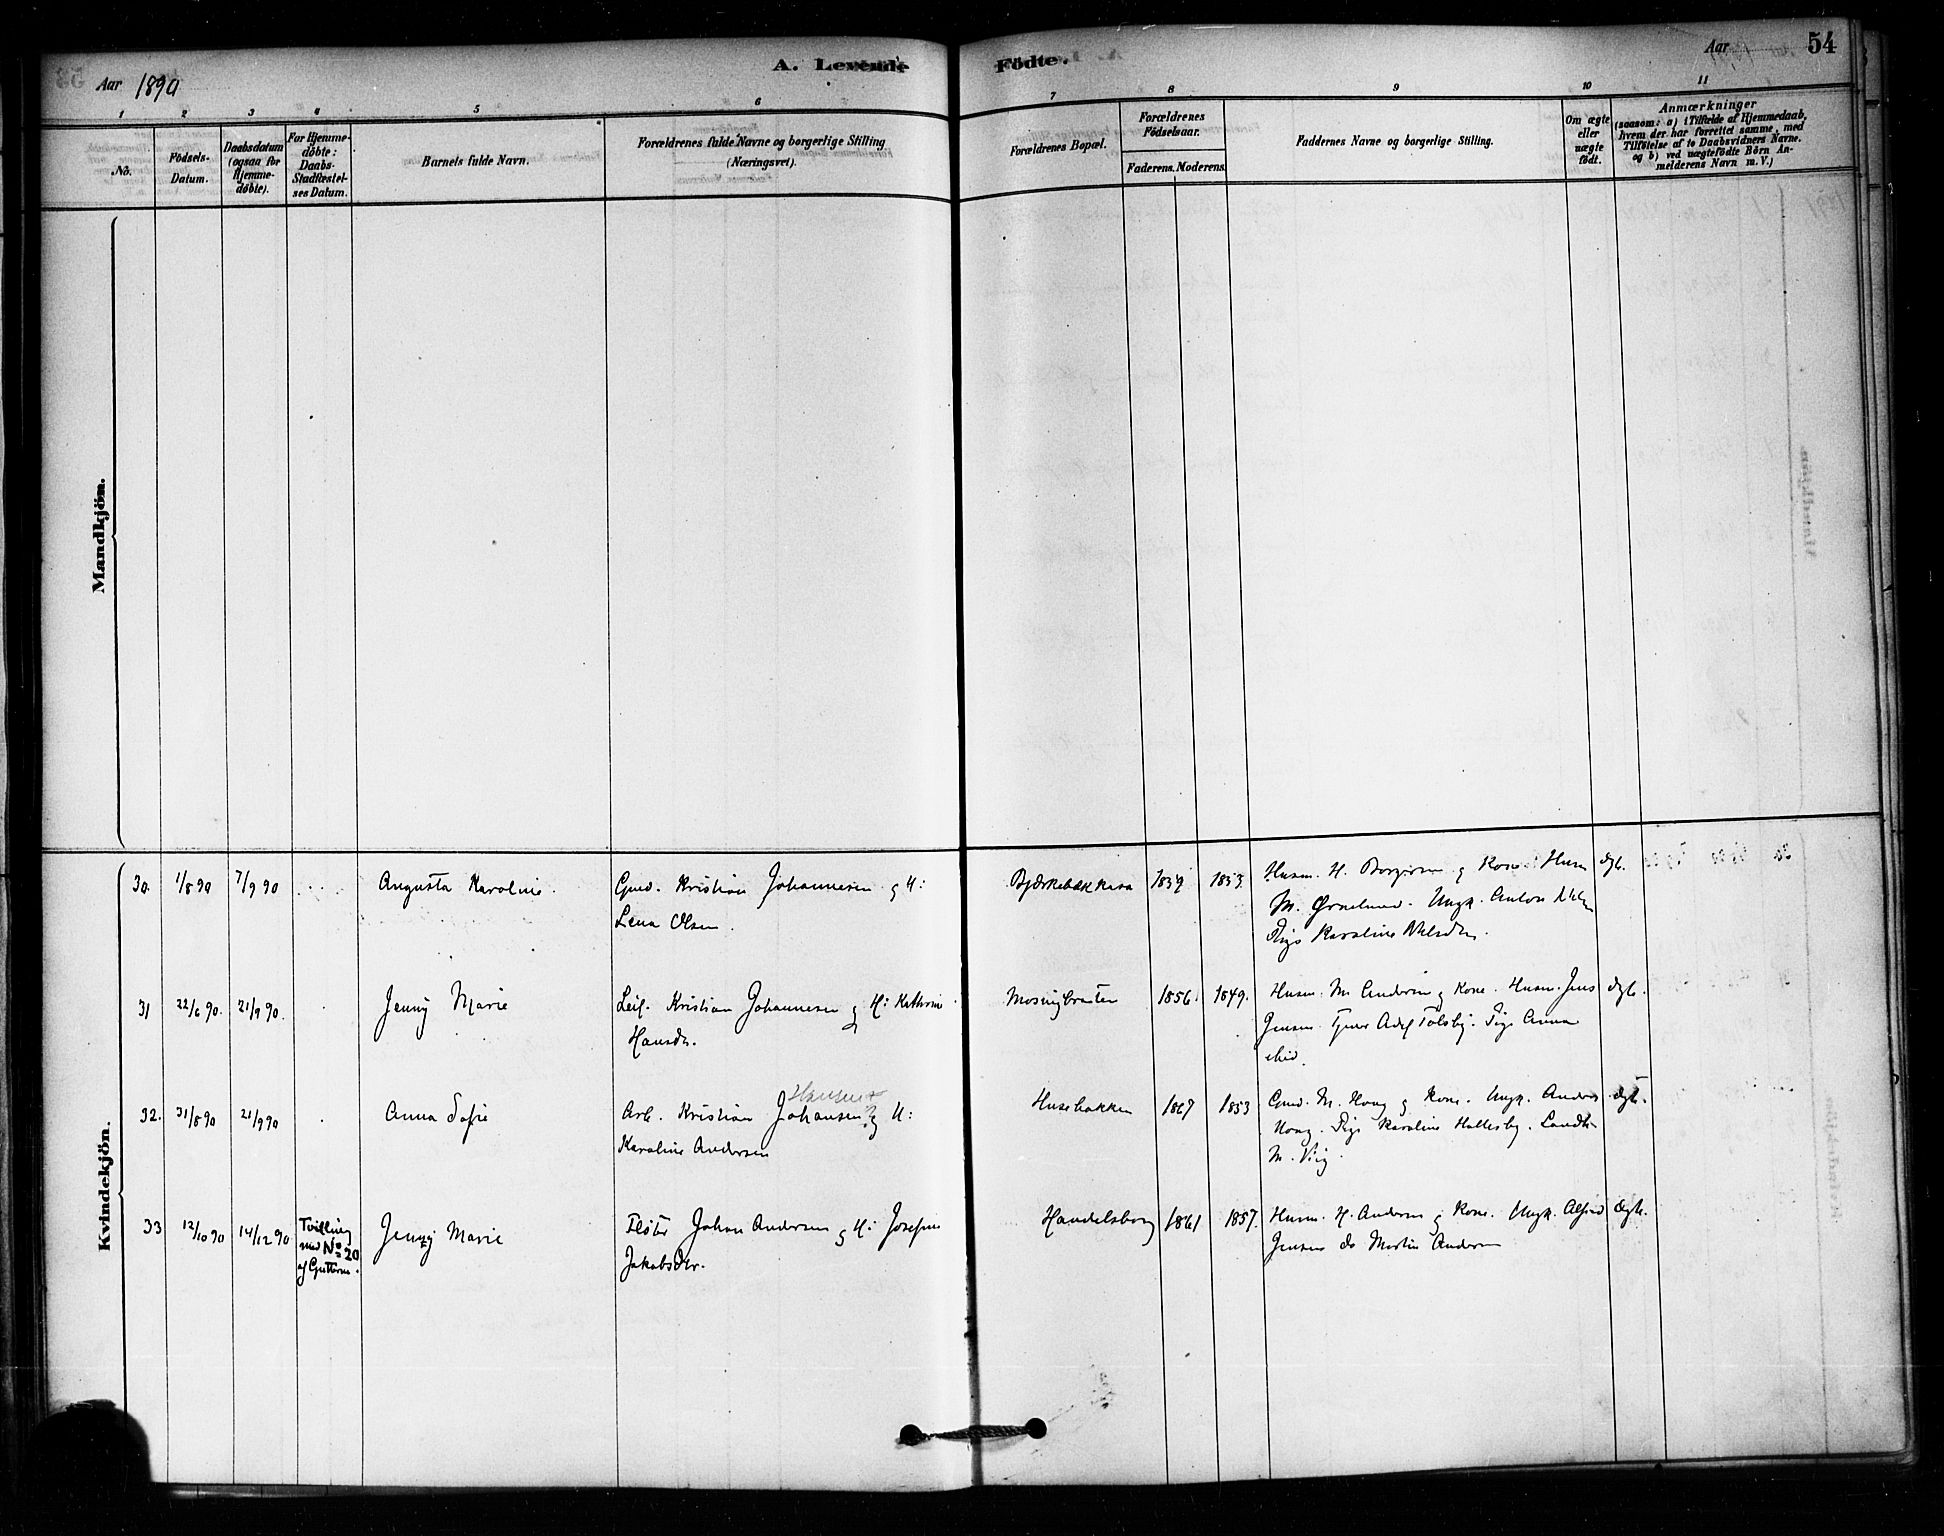 Aar 1890
A. Levende Födte.
Aar
54
1 2 3 4 5 6 7 8 9 10 11
No.
Födsels-
Datum.
Daabsdatum
(ogsaa for
Hjemme-
döbte).
For Hjemme-
döbte:
Daabs-
Stadfæstel-
ses Datum.
Barnets fulde Navn.
Forældrenes fulde Navne og borgerlige Stilling
(Næringsvei).
Forældrenes Bopæl.
Forældrenes
Födselsaar.
Faderens. Moderens.
Faddernes Navne og borgerlige Stilling.
Om ægte
eller
uægte
födt.
Anmærkninger
(saasom: a) i Tilfælde af Hjemmedaab,
hvem der har forrettet samme, med
Tilföielse af to Daabsvidners Navne.
og b) ved uægtefödte Börn An-
melderens Navn m. V.)
Mandkjön.
Kvindekjön.
30. 1/8 90 7/9 90 Augusta Karoline. Gmd. Kristian Johannesen og H: 1853. Husm. H. og Kone Husm ægte.
Lena Olsen.
M. Ungk. Anton
Pige Karoline
31 22/6 90. 21/9 90. Jenny Marie Leil. Kristian Johannesen og H: Kathrine 1856. 1849. Husm. M. Andersen og Kone. Husm. Jens ægte.
Hansdr.
Jensen. Tjener Adolf Pige Anna
32. 31/8 90 21/9 90 Anna Sofie Arb. Kristian Johansen og H: Husebakken 1867 1853 Gmd. M. Houg og Kone. Ungk. Anders ægte.
Hansen
Karoline Andersen
Houg. Pige Karoline Hallesby.
M. Vig.
33 12/10 90 14/12 90 Tvilling
med No 20
af Guttene.
Jenny Marie Johan Andersen og H: Josefine Handelsborg 1861 1857. Husm. H. Andersen og Kone. Ungk. Alfred ægte.
Jakobsdtr.
Jensen do Martin Andersen